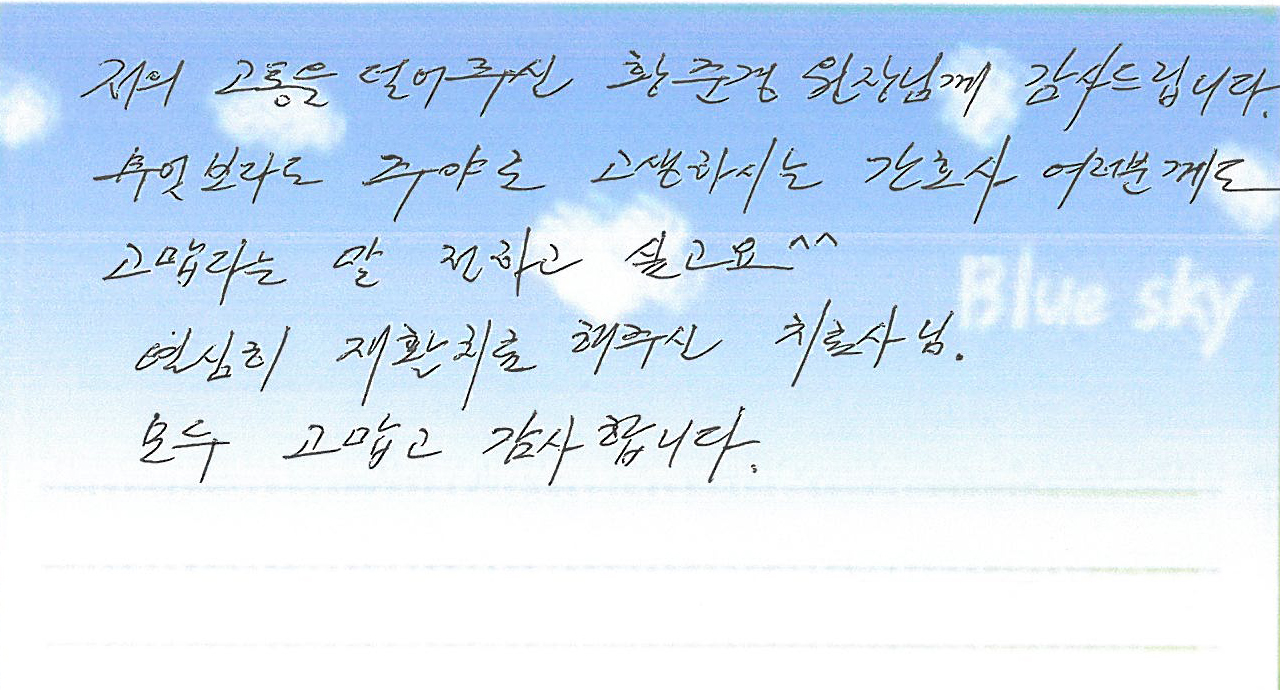 저의 고통을 덜어주신 황준경 원장님께 감사드립니다.
무엇보라도 주야로 고생하시는 간호사 여러분께도
고맙다는 말 전하고 싶고요^^
Blue sky
열심히 재활치료 해주신 치료사님.
모두 고맙고 감사합니다.